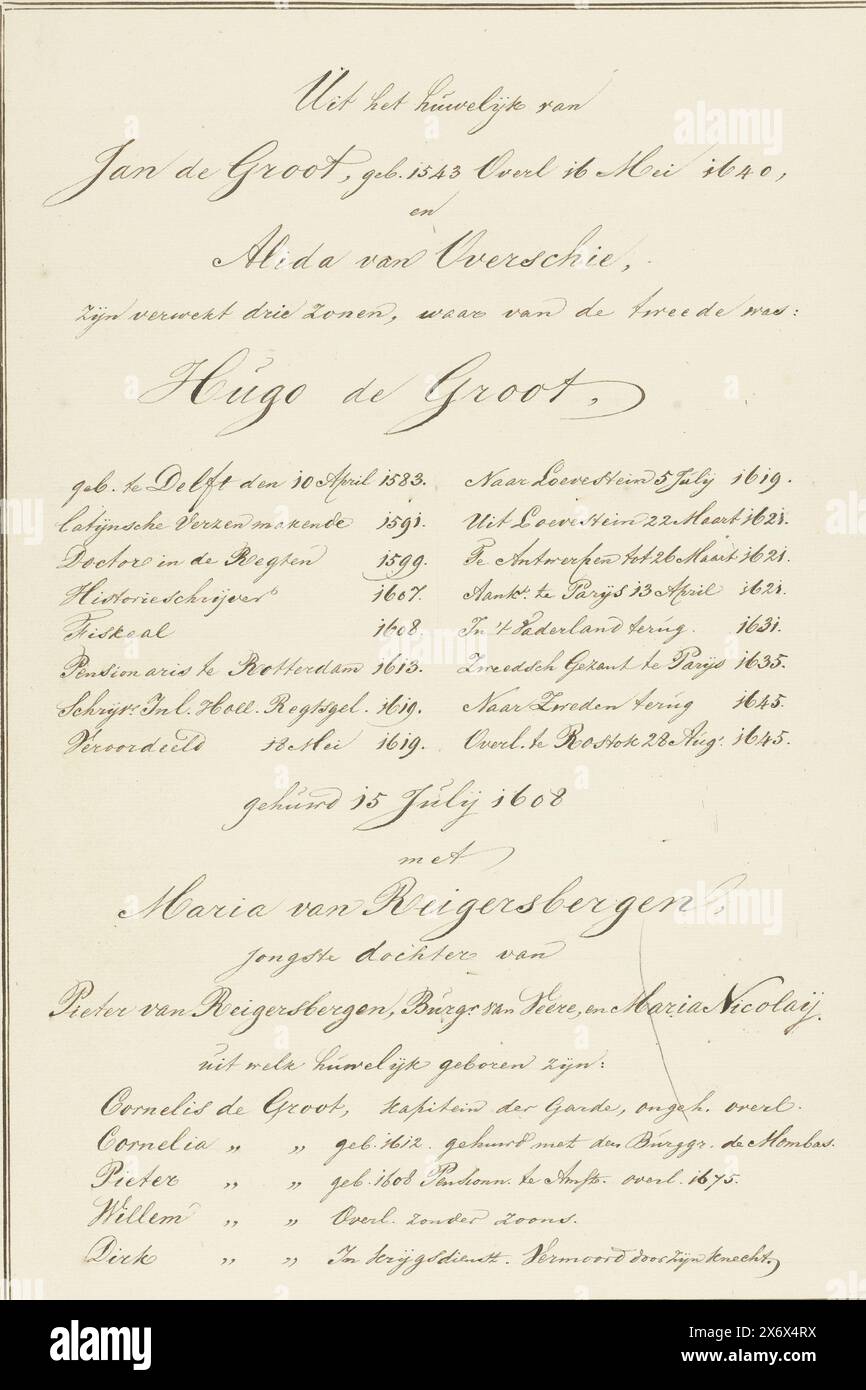 Uit het huwelijk van
Jan de Groot, geb. 1543 Overl 16 Mei 1640,
en
Alida van Overschie,
zijn verwekt drie zonen, waar van de tweede was:
Hugo de Groot,
geb. te Delft den 10 April 1583. Naar Loevestein 5 July 1619.
Latijnsche Verzen makende 1591. Uit Loevestein 22 Maart 1621.
Doctor in de Regten 1599. Te Antwerpen tot 26 Maart 1621.
Historieschrijver 1607. Aankt. te Parijs 13 April 1621.
Fiskaal 1608. In 't Vaderland terug. 1631.
Pensionaris te Rotterdam 1613. Zweedsch Gezant te Parijs 1635.
Schrijvr. Inl. Holl. Regtsgel. 1619. Naar Zweden terug 1645.
Veroordeeld 18 Mei 1619. Overl. te Rostok 28 Augs. 1645.
gehuwd 15 July 1608
met
Maria van Reigersbergen,
jongste dochter van
Pieter van Reigersbergen, Burgr. van Veere, en Maria Nicolaij.
uit welk huwelijk geboren zijn:
Cornelis de Groot, kapitein der Garde, ongeh. overl.
Cornelia „ „ geb. 1612. gehuwd met den Burggr. de Mombas.
Pieter „ „ geb. 1608 Pensionn. te Amst. overl. 1675.
Willem „ „ Overl. zonder zoons.
Dirk „ „ In krijgsdienst. Vermoord door zijn knecht.
alamy
Image ID: 2X6X4RX
www.alamy.com